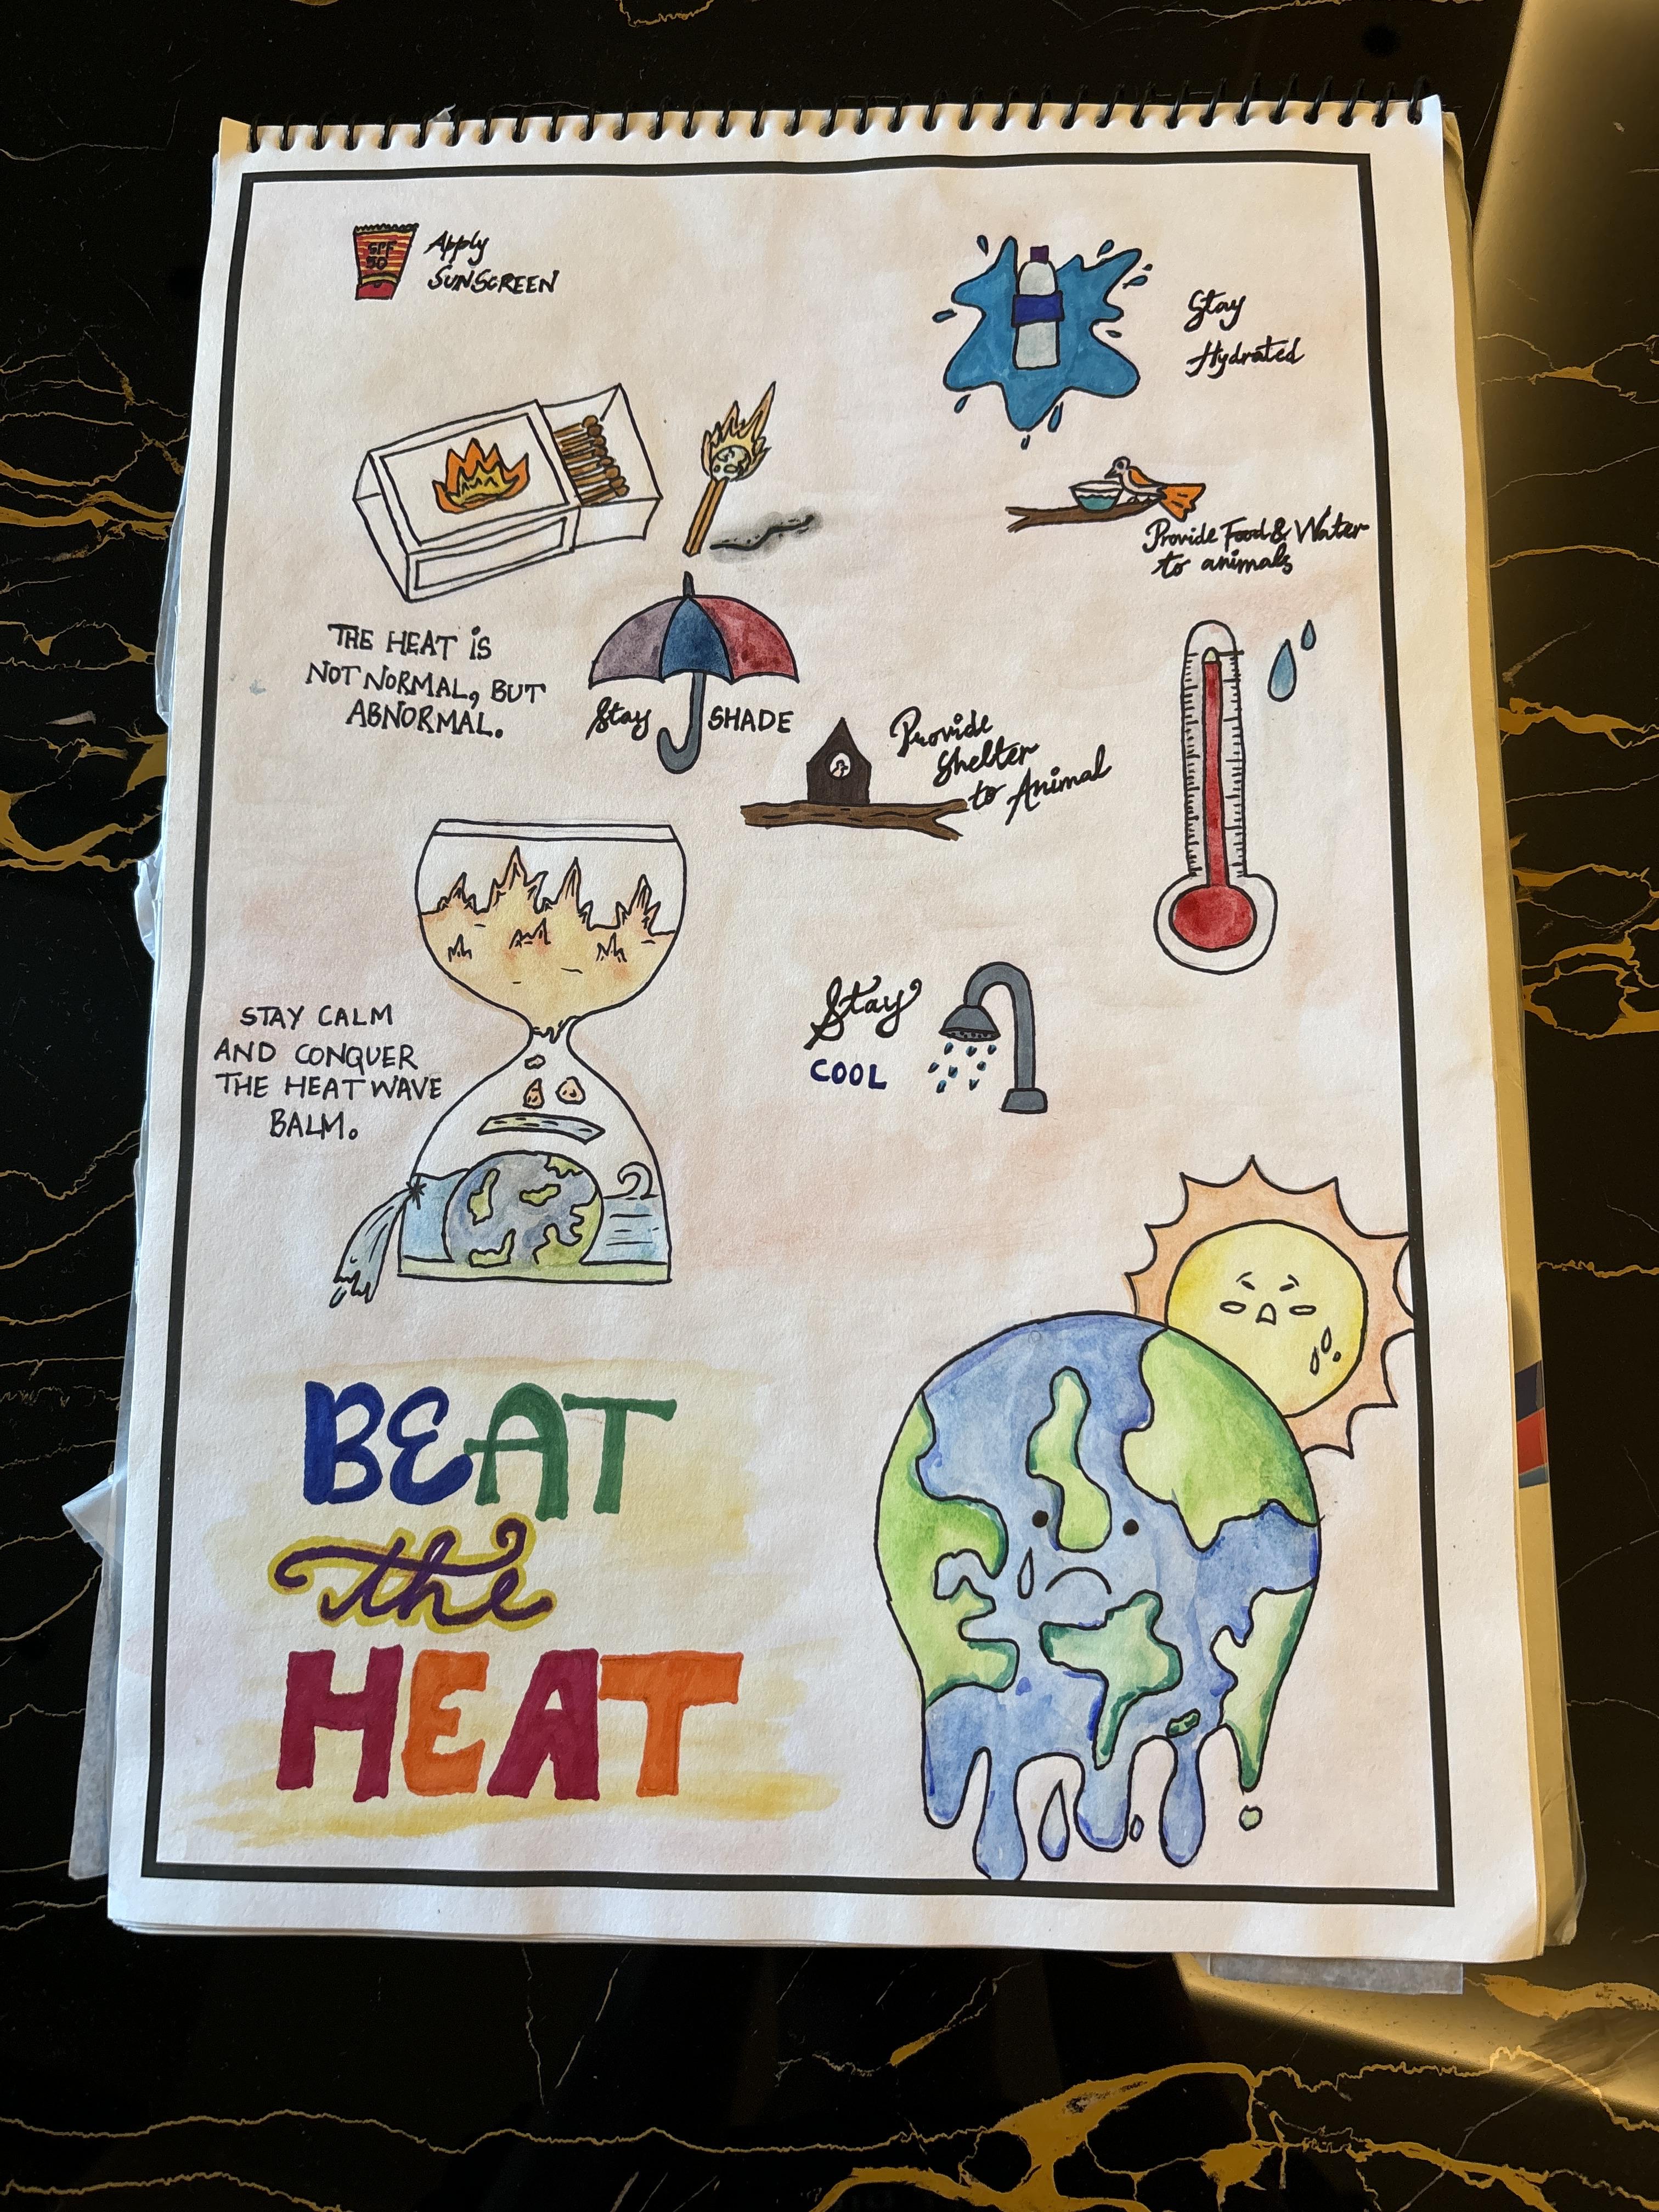 SPF
50
Apply
SUNSCREEN
Stay
Hydrated
Provide Food & Water
to animals
THE HEAT IS
NOT NORMAL, BUT
ABNORMAL.
Stay SHADE
Provide
Shelter
to Animal
STAY CALM
AND CONQUER
THE HEAT WAVE
BALM.
Stay
COOL
BEAT
the
HEAT